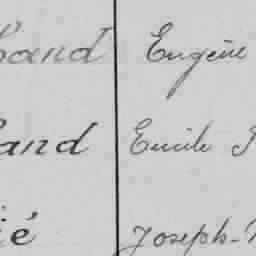 band Eugène
and Emile
ié Joseph-